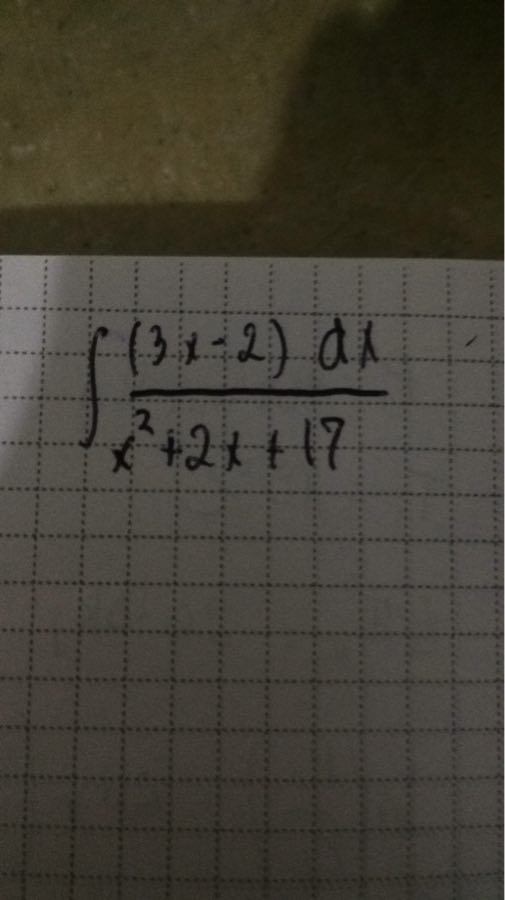 ∫ (3x-2) dx
x²+2x+17